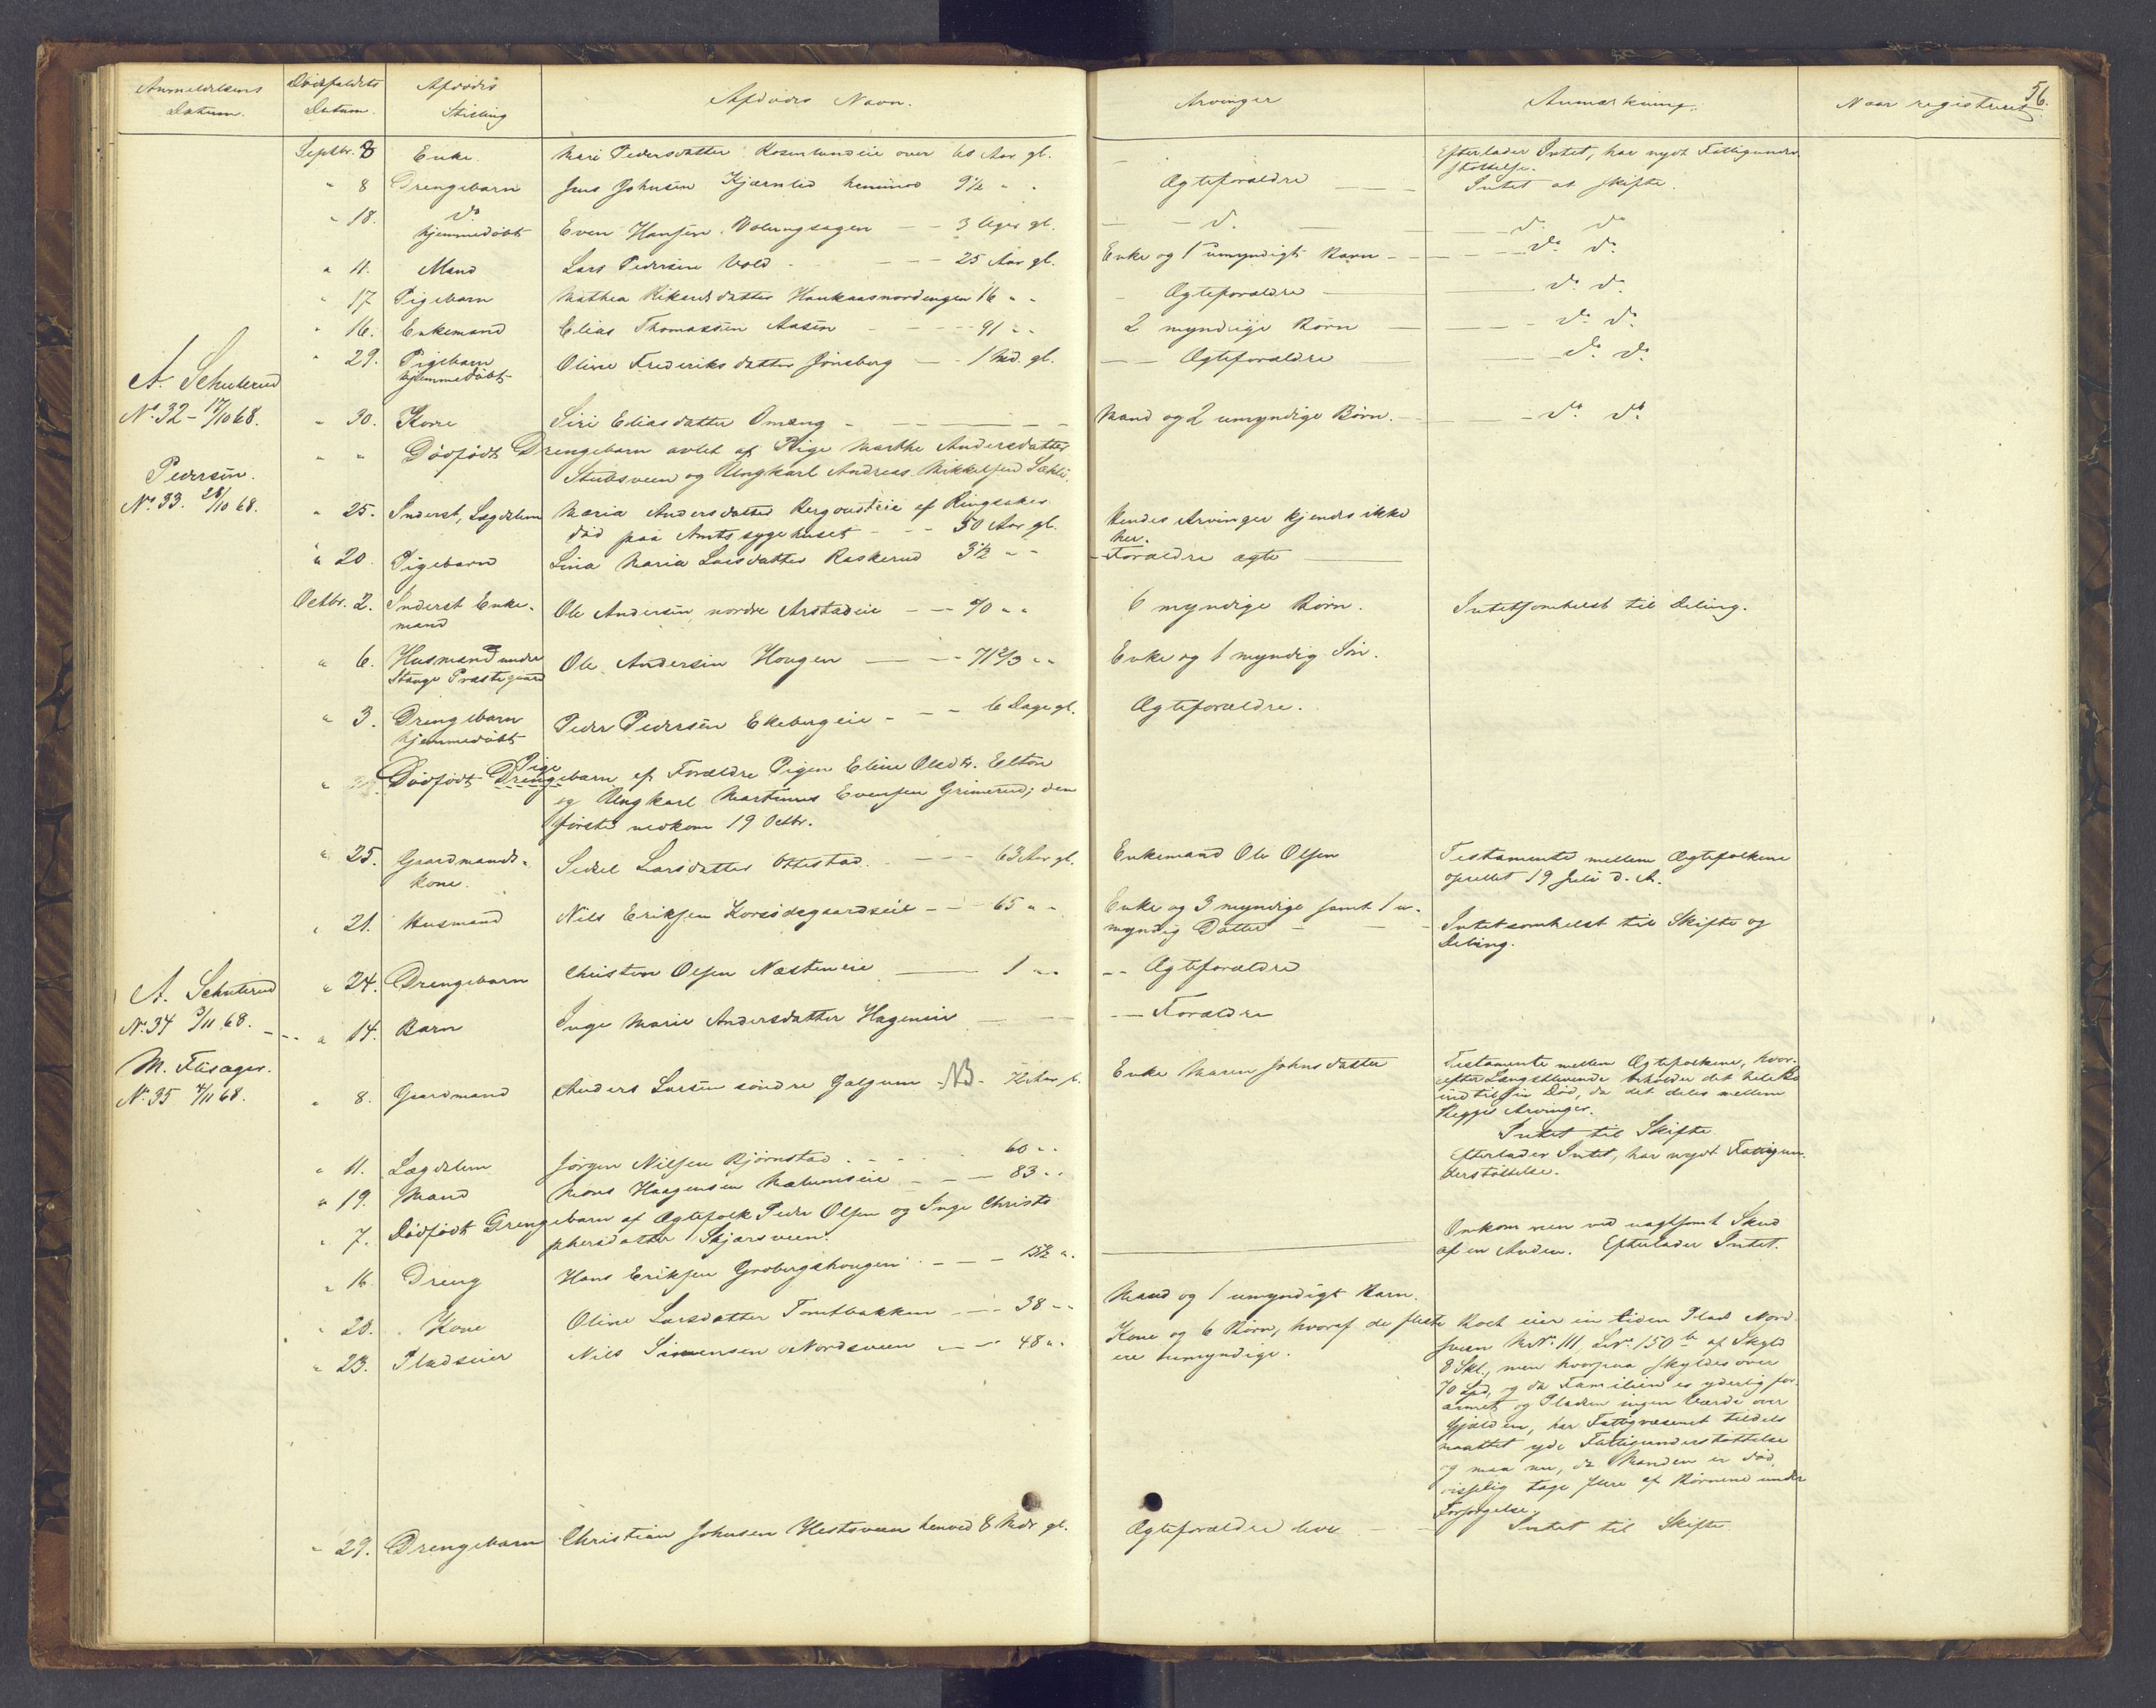 Anmeldelsens Datum. Dödsfaldets Datum. Afdödes Stilling Afdödes Navn. Arvinger Anmærkning. Naar registreret 56.
Septbr. 8 Enke. Mari Pedersdatter Rosenlundeie over 60 Aar gl. Efterlader Intet, har nydt Fattigunder-
støttelse.
" 8 Drengebarn Jens Johnsen Kjærnlid henimod 9 1/2 " " Ægteforældre Intet at skifte.
" 18. do hjemmedöbt Even Hansen Volungsagen 3 Uger gl. do do do
" 11. Mand Lars Pedersen Vold 25 Aar gl. Enke og 1 umyndigt Barn do do
" 17 Pigebarn Mathea Rikardsdatter Haukaasnordengen 16 " " Ægteforældre do do
" 16. Enkemand Elias Thomassen Aasen 91 " " 2 myndige Börn do do
" 29. Pigebarn hjemmedöbt Oline Frederiksdatter Jönsberg 1 Md. gl. Ægteforældre do do
A. Schuterud
No. 32 - 17/10 68. " 30. Kone Siri Eliasdatter Omeng Mand og 2 umyndige Börn. do do
" " Dödfödt Drengebarn avlet af Pige Marthe Andersdatter
Stubsveen og Ungkarl Andreas Mikkelsen Sæhli.
Pedersen.
No. 33. 28/10 68. " 25. Inderst, Lægdslem Maria Andersdatter Bergousteie af Ringsaker
död paa Amtssygehuset 50 Aar gl. Hendes Arvinger kjendes ikke
her.
" 20. Pigebarn Lina Maria Larsdatter Raskerud 3 1/2 " " Forældre ægte
Octbr. 2. Inderst Enke-
mand Ole Andersen, nordre Arstadeie 70 " " 6 myndige Börn. Intetsomhelst til Deling.
" 6. Husmand under
Stange Præstegaard Ole Andersen Hougen 71 2/3 " " Enke og 1 myndig Sön.
" 3. Drengebarn
hjemmedöbt Peder Pedersen Ekebergeie 6 Dage gl. Ægteforældre.
" Dödfödt Drengebarn Pige af Forældre Pigen Eline Olsdtr. Elton
og Ungkarl Martinus Evensen Grimerud; den
förste nedkom 19 Octbr.
" 25. Gaardmands-
kone. Sidsel Larsdatter Ottestad. 63 Aar gl. Enkemand Ole Olsen Testamente mellem Ægtefolkene
oprettet 19 Juli d. A.
" 21. Husmand Nils Eriksen Korsödegaardseie 65 " " Enke og 3 myndige samt 1 u-
myndig Datter Intetsomhelst til Skifte og
Deling.
A. Schuterud " 24. Drengebarn Christen Olsen Næsteneie 1 " " Ægteforældre
No. 34 3/11 68. " 14. Barn Inge Marie Andersdatter Hageneie Forældre
M. Flisager.
No. 35 4/11 68. " 8. Gaardmand Anders Larsen söndre Galgum NB. Enke Maren Johnsdatter Testamente mellem Ægtefolkene, hvor-
efter Længstlevende beholder det hele Bo
indtil sin Död, da det deles mellem
Begges Arvinger.
Intet til Skifte.
" 11. Lægdslem Jörgen Nilsen Björnstad 60 " " Efterlader Intet, har nydt Fattigun-
derstöttelse.
" 19. Mand Mons Haagensen Mælumseie 83 " "
" 7. Dödfödt Drengebarn af Ægtefolk Peder Olsen og Inge Christo
phersdatter Skjærsveen.
" 16. Dreng Hans Eriksen Grobergshougen 15 1/2 " Omkom ved uagtsomt Skud
af en Anden. Efterlader Intet.
" 20. Kone Oline Larsdatter Tomtbakken 38 " " Mand og 1 umyndigt Barn.
" 23. Pladseier Nils Simensen Nordsveen 48 " " Kone og 6 Börn, hvoraf de fleste
ere umyndige. Boet eier en liden Plads Nord-
sveen M.No. 111, L.No. 150 b af Skyld
8 Skl., men hvorpaa skyldes over
70 Spd, og da Familien er yderlig for-
armet og Pladsen ingen Værdi over
Gjælden, har Fattigvæsenet tildels
maattet yde Fattigunderstöttelse
og maa nu, da Manden er död,
visselig tage flere af Börnene under
Forsörgelse.
" 29. Drengebarn Christian Johnsen Hestsveen henved 8 Mdr gl. Ægteforældre leve Intet til Skifte